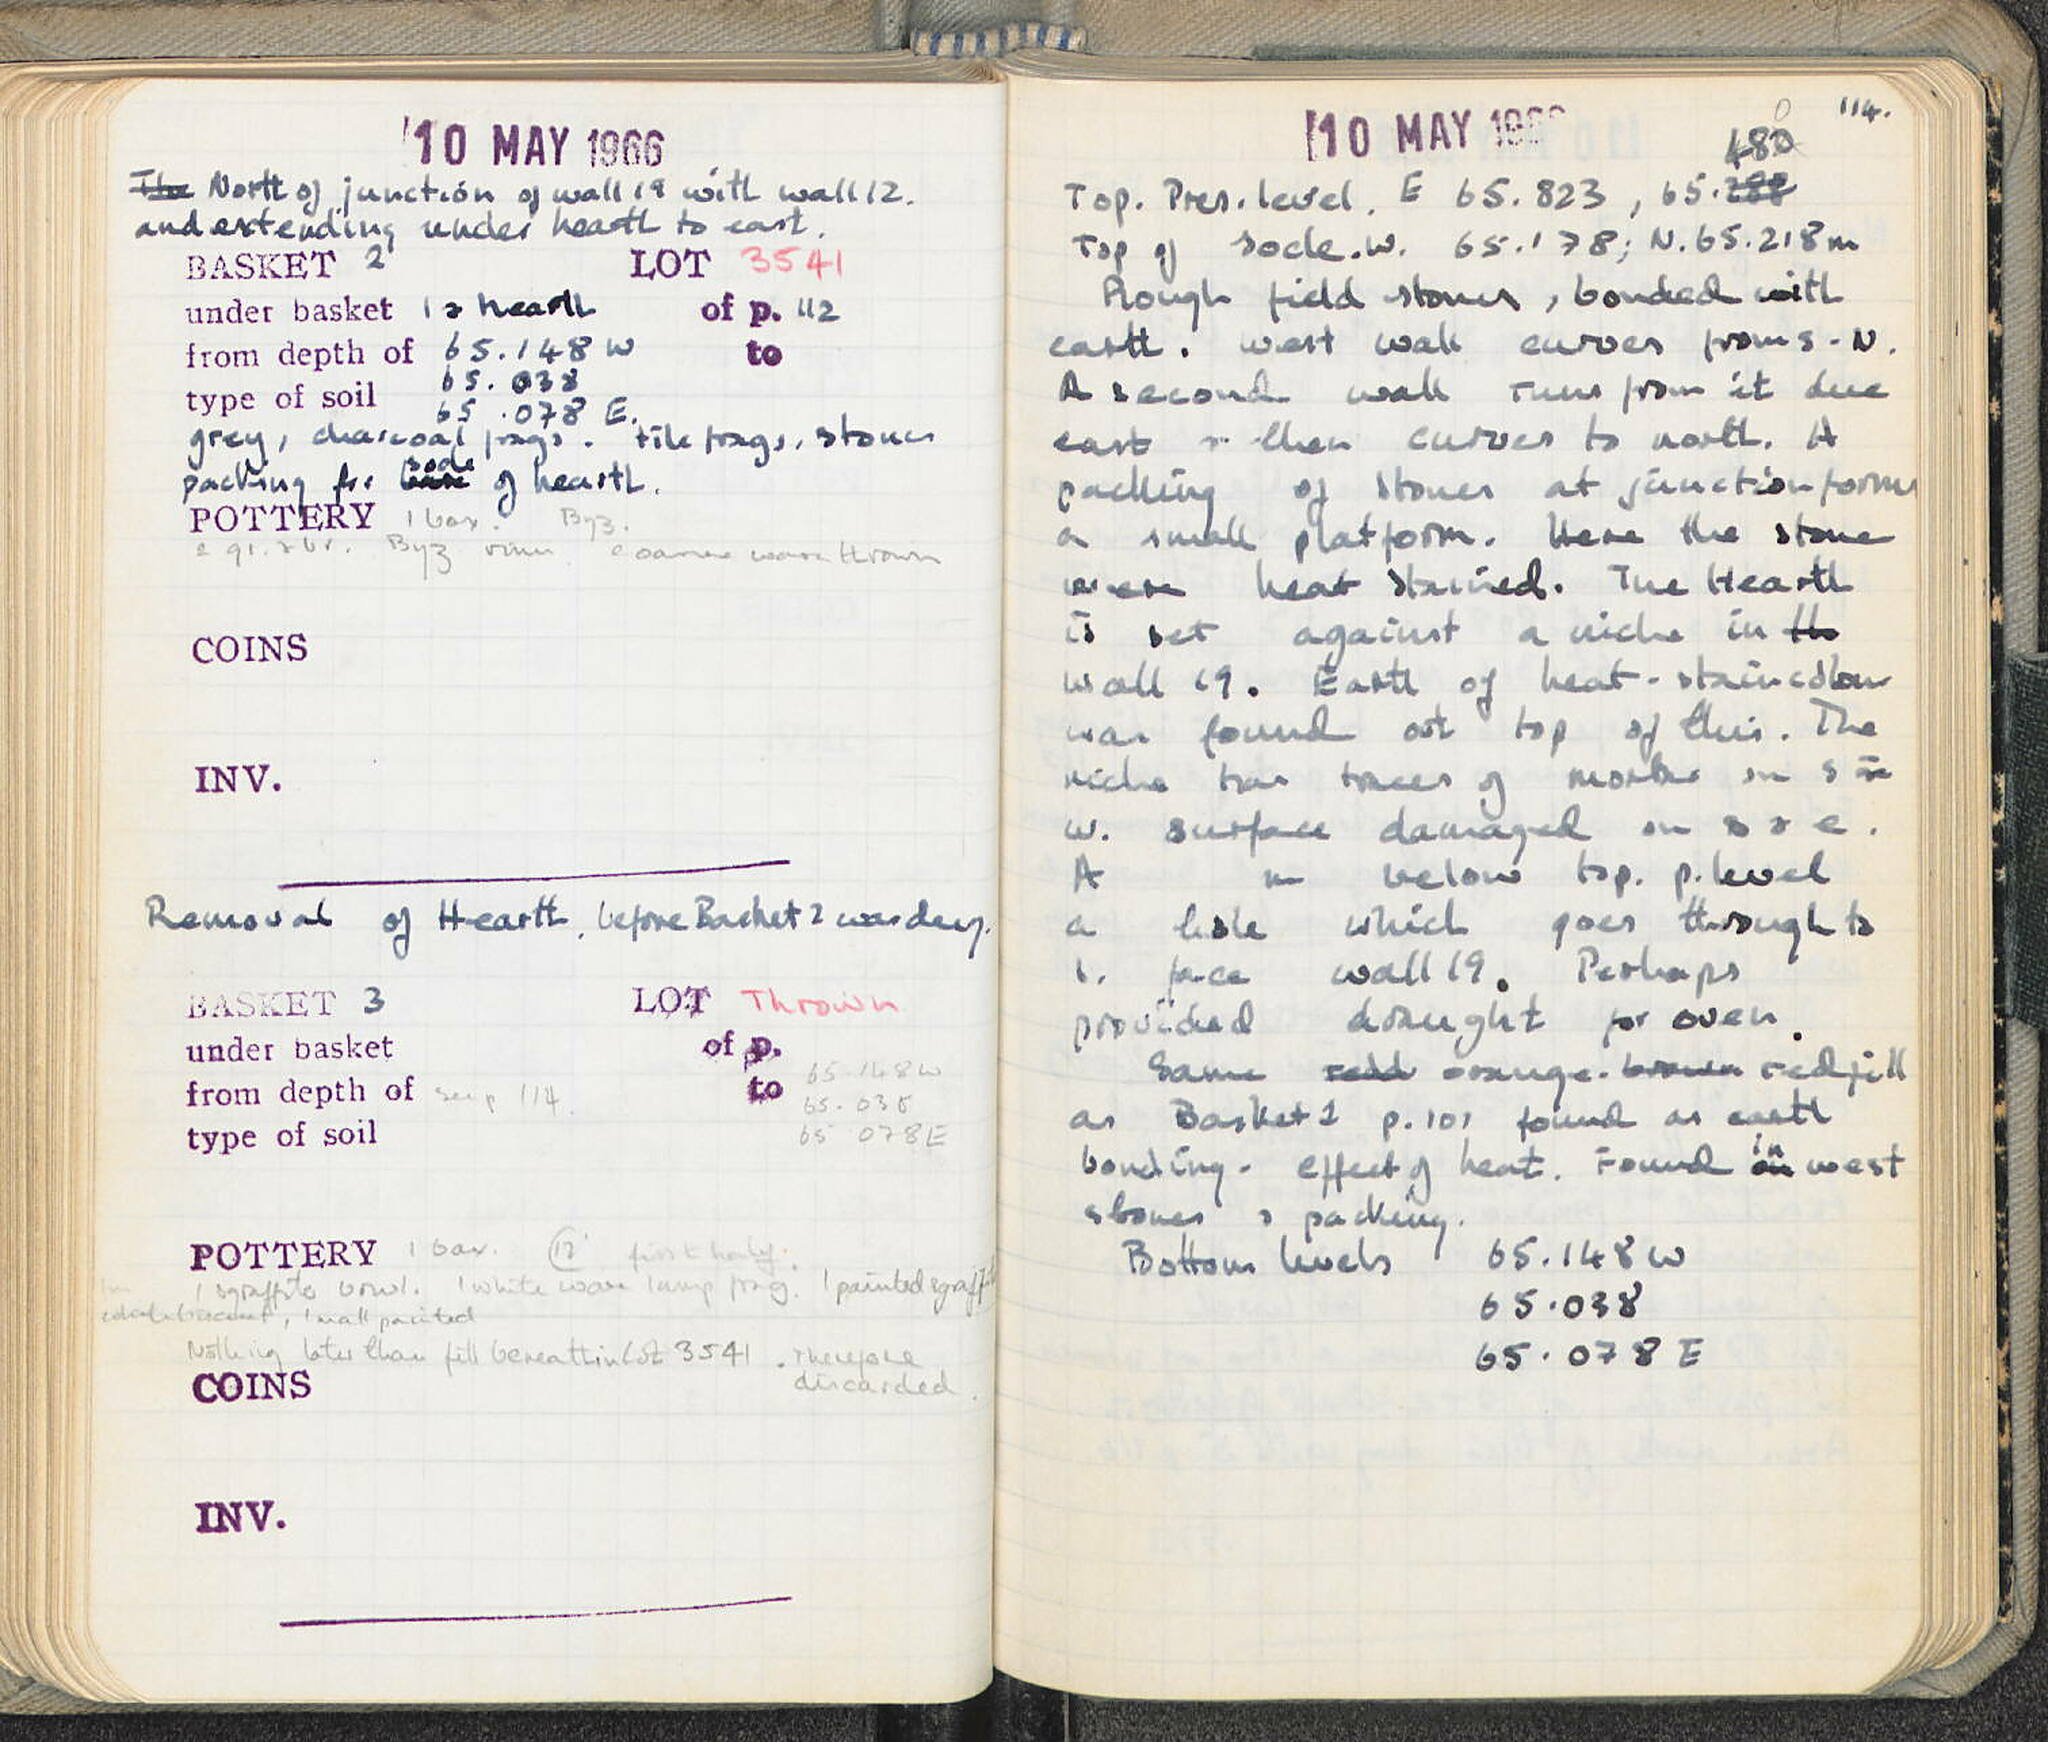 10 MAY 1966
The North of junction of wall 19 with wall 12.
and extending under hearth to east.
BASKET 2 LOT 3541
under basket 1 & hearth of p. 112
from depth of 65.148 W to
65.038
type of soil
65.078 E.
grey, charcoal frags. tile frags, stones
socle
packing for base of hearth.
POTTERY 1 box. Byz.
gr. & br. Byz rim coarse ware thrown
COINS
INV.
Removal of Hearth, before Basket 2 was dug.
BASKET 3 LOT Thrown
under basket of p.
from depth of see p 114. to 65.148 W
65.038
type of soil 65 078 E
POTTERY 1 box. 12 first half.
1 sgraffito bowl. 1 white ware lamp frag. 1 painted sgraff
, 1 matt painted
Nothing later than fill beneath in lot 3541. Therefore
discarded.
COINS
INV.
10 MAY 1966
114.
480
Top. Pres. level. E 65.823, 65.288
Top of socle. W. 65.178; N. 65.218m
Rough field stones, bonded with
earth. West wall curves from S-N.
A second wall runs from it due
east & then curves to north. A
packing of stones at junction forms
a small platform. Here the stone
were heat stained. The Hearth
is set against a niche in the
wall 19. Earth of heat-stained colour
was found at top of this. The
niche has traces of mortar on S &
W. surface damaged on S & E.
A m below top. p. level
a hole which goes through to
S. face wall 19. Perhaps
provided draught for oven.
Same redd orange-brown red fill
as Basket 1 p. 101 found as earth
bonding - effect of heat. Found in west
stones & packing.
Bottom levels 65.148 W
65.038
65.078 E